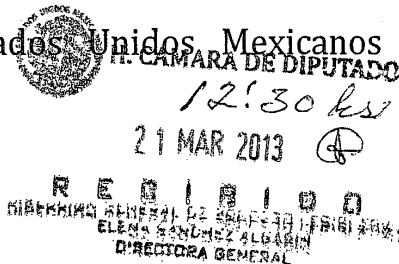 ados Unidos Mexicanos
H. CAMARA DE DIPUTADO
12:30 hs
21 MAR 2013
R E C I B I D O
GENERAL DE
ELENA SANCHEZ ALGARIN
DIRECTORA GENERAL